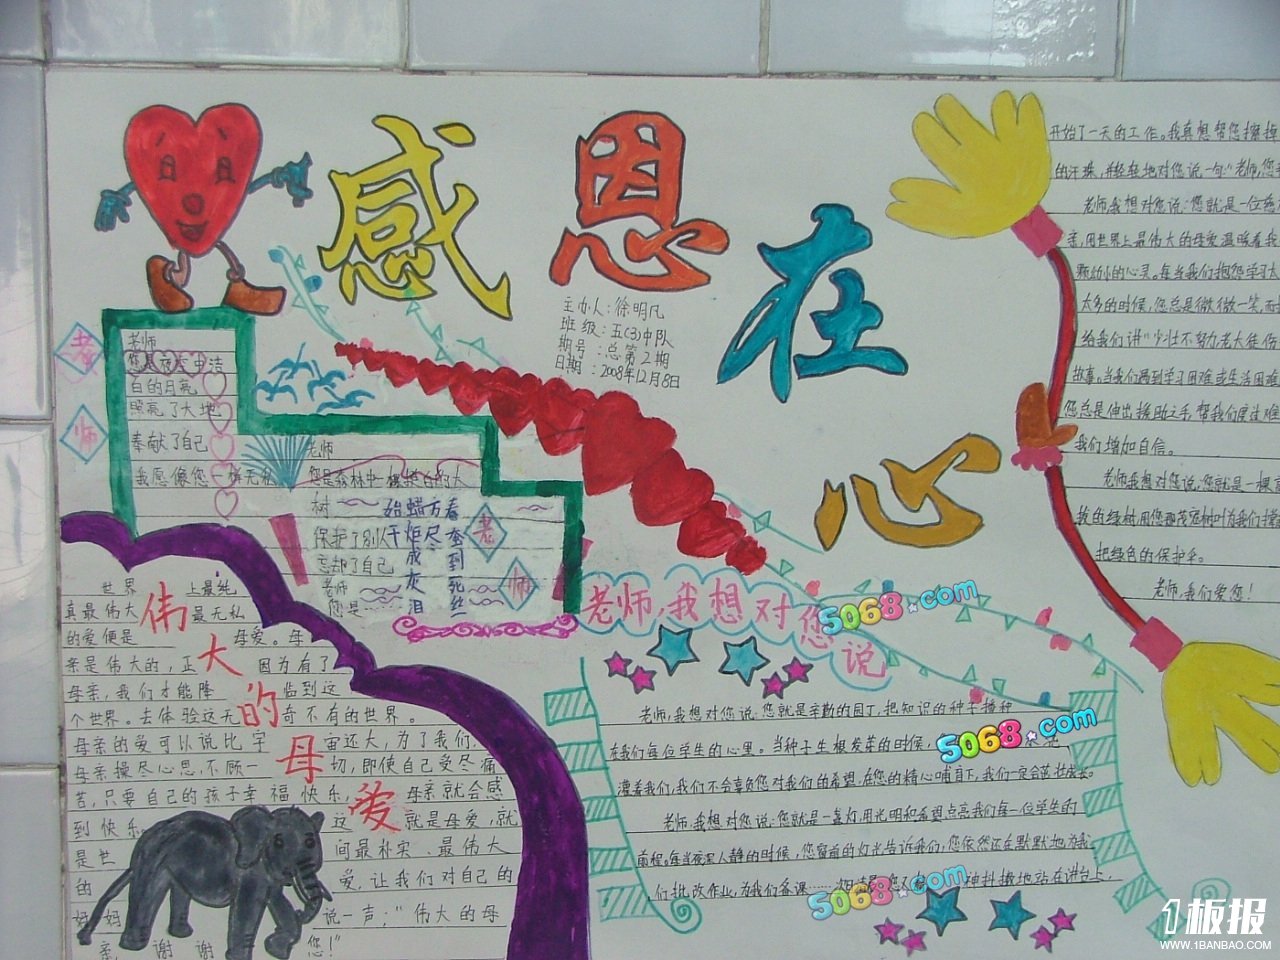 感恩在心
主办人：徐明凡
班级：五(3)中队
期号：总第2期
日期：2008年12月8日
老师
老师
您是夜空中洁
白的月亮
照亮了大地
奉献了自己
我愿像您一样无私
老师
您是森林中一棵挺白的大
树
保护了别人
忘却了自己
老师
您是……
春蚕到死丝方尽
蜡炬成灰泪始干
老师
伟大的母爱
世界上最纯
真最伟大最无私
的爱便是母爱。母
亲是伟大的，正因为有了
母亲，我们才能降临到这
个世界。去体验这无奇不有的世界。
母亲的爱可以说比宇宙还大，为了我们，
母亲操尽心思，不顾一切，即使自己受尽痛
苦，只要自己的孩子幸福快乐，母亲就会感
到快乐。这就是母爱，就
是世间最朴实、最伟大
的爱，让我们对自己的
妈妈说一声：“伟大的母
亲，谢谢您！”
老师，我想对您说
老师，我想对您说：您就是辛勤的园丁，把知识的种子播种
在我们每位学生的心里。当种子生根发芽的时候，
灌着我们，我们不会辜负您对我们的希望，在您的精心哺育下，我们一定会茁壮成长。
老师，我想对您说：您就是一盏灯，用光明和希望点亮我们每一位学生的
前程。每当夜深人静的时候，您窗前的灯光告诉我们，您依然还在默默地为我
们批改作业，为我们备课……次日清晨，您又神抖擞地站在讲台上，
开始了一天的工作。我真想帮您擦掉
的汗珠，并轻轻地对您说一句：“老师，您
老师，我想对您说：您就是一位慈
亲，用世界上最伟大的母爱温暖着我
颗幼小的心灵。每当我们抱怨学习太
太多的时候，您总是微微一笑，而
给我们讲“少壮不努力老大徒伤
故事。当我们遇到学习困难或生活困难
您总是伸出援助之手，帮我们度过难
我们增加自信。
老师我想对您说：您就是一棵高
我的绿树，用您那茂密树叶为我们撑
把绿色的保护伞。
老师，我们爱您！
5068.com
5068.com
5068.com
1板报
WWW.1BANBAO.COM